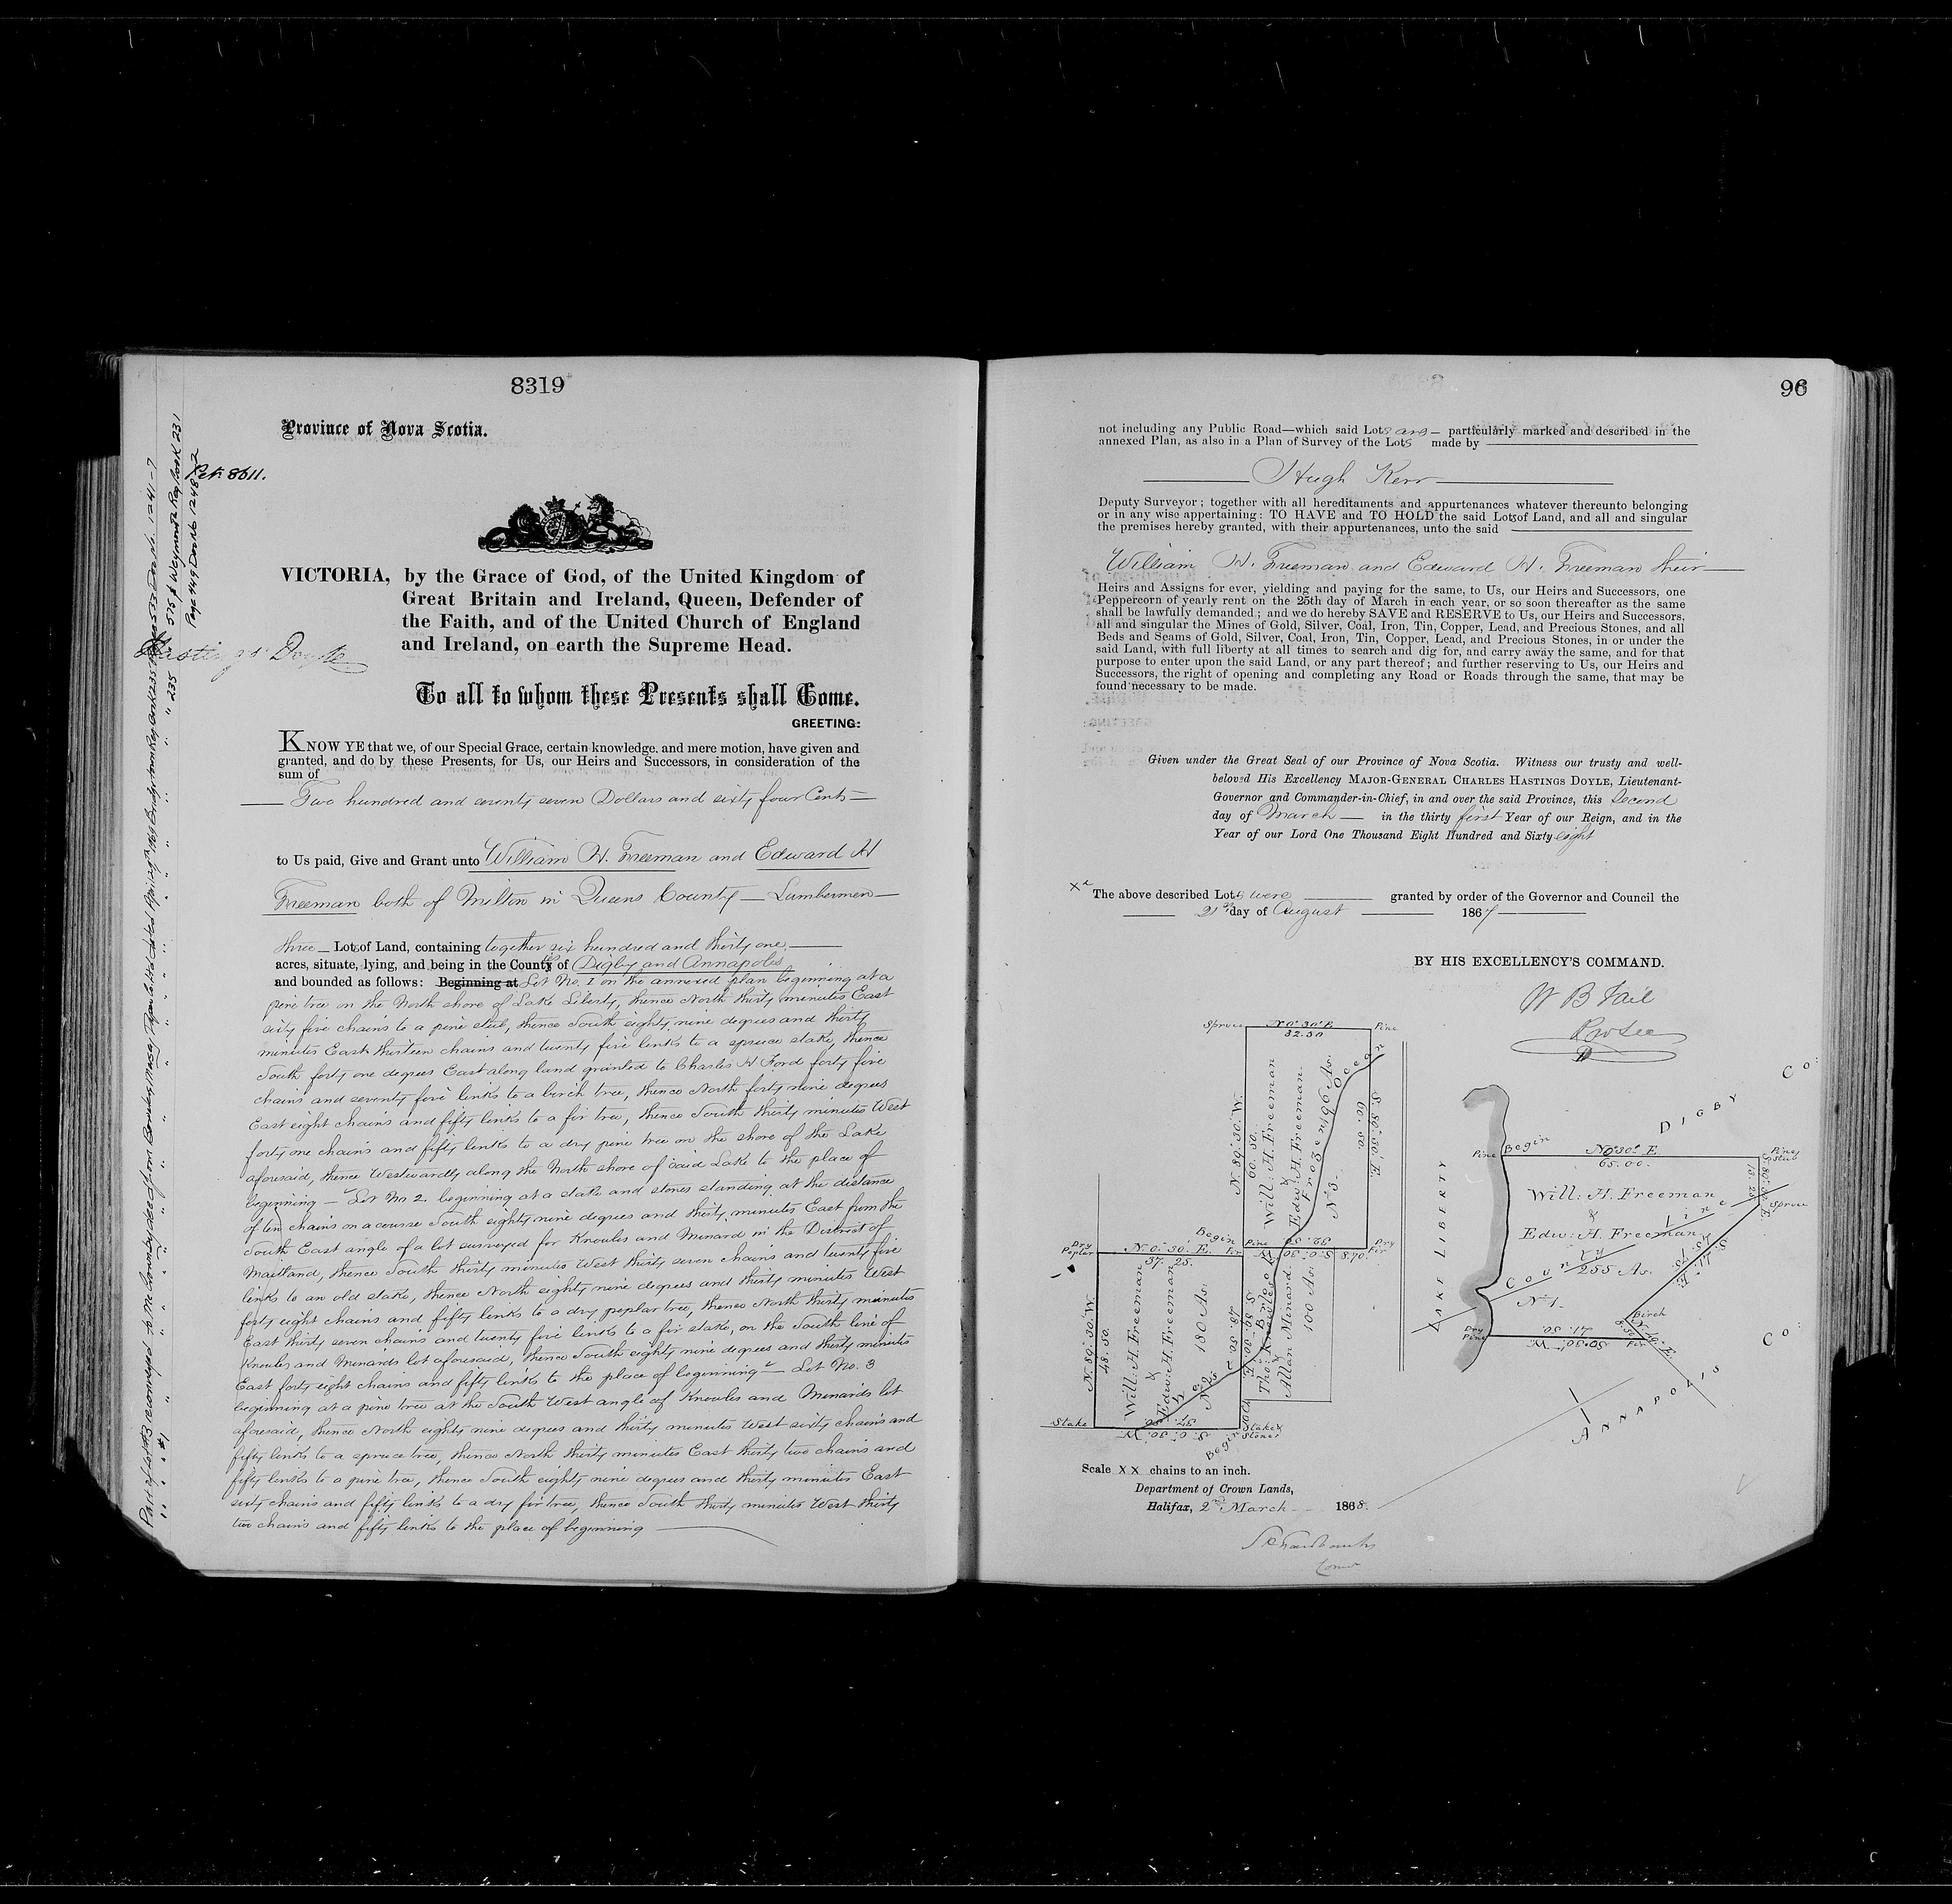 8319
Province of Nova Scotia.
Pet. 8611.
Hastings Doyle
VICTORIA, by the Grace of God, of the United Kingdom of
Great Britain and Ireland, Queen, Defender of
the Faith, and of the United Church of England
and Ireland, on earth the Supreme Head.
To all to whom these Presents shall Come.
GREETING:
KNOW YE that we, of our Special Grace, certain knowledge, and mere motion, have given and
granted, and do by these Presents, for Us, our Heirs and Successors, in consideration of the
sum of
Two hundred and seventy seven Dollars and sixty four Cents
to Us paid, Give and Grant unto William H. Freeman and Edward H
Freeman both of Milton in Queens County — Lumbermen
three Lots of Land, containing together six hundred and thirty one
acres, situate, lying, and being in the County of Digby and Annapolis
and bounded as follows: Beginning at Lot No. 1 on the annexed plan beginning at a
pine tree on the North shore of Lake Liberty, thence North thirty minutes East
sixty five chains to a pine stub, thence South eighty nine degrees and thirty
minutes East thirteen chains and twenty five links to a spruce stake, thence
South forty one degrees East along land granted to Charles H Ford forty five
chains and seventy five links to a birch tree, thence North forty nine degrees
East eight chains and fifty links to a fir tree, thence South thirty minutes West
forty one chains and fifty links to a dry pine tree on the shore of the Lake
aforesaid, thence Westwardly along the North shore of said Lake to the place of
beginning — Lot No 2. beginning at a stake and stones standing at the distance
of ten chains on a course South eighty nine degrees and thirty minutes East from the
South East angle of a lot surveyed for Knowles and Minard in the District of
Maitland, thence South thirty minutes West thirty seven chains and twenty five
links to an old stake, thence North eighty nine degrees and thirty minutes West
forty eight chains and fifty links to a dry poplar tree, thence North thirty minutes
East thirty seven chains and twenty five links to a fir stake, on the South line of
Knowles and Minards lot aforesaid, thence South eighty nine degrees and thirty minutes
East forty eight chains and fifty links to the place of beginning — Lot No. 3
beginning at a pine tree at the South West angle of Knowles and Minards lot
aforesaid, thence North eighty nine degrees and thirty minutes West sixty chains and
fifty links to a spruce tree, thence North thirty minutes East thirty two chains and
fifty links to a pine tree, thence South eighty nine degrees and thirty minutes East
sixty chains and fifty links to a dry fir tree, thence South thirty minutes West thirty
two chains and fifty links to the place of beginning
96
not including any Public Road—which said Lots are particularly marked and described in the
annexed Plan, as also in a Plan of Survey of the Lots made by
Hugh Kerr
Deputy Surveyor; together with all hereditaments and appurtenances whatever thereunto belonging
or in any wise appertaining: TO HAVE and TO HOLD the said Lots of Land, and all and singular
the premises hereby granted, with their appurtenances, unto the said
William H. Freeman and Edward H. Freeman their
Heirs and Assigns for ever, yielding and paying for the same, to Us, our Heirs and Successors, one
Peppercorn of yearly rent on the 25th day of March in each year, or so soon thereafter as the same
shall be lawfully demanded; and we do hereby SAVE and RESERVE to Us, our Heirs and Successors,
all and singular the Mines of Gold, Silver, Coal, Iron, Tin, Copper, Lead, and Precious Stones, and all
Beds and Seams of Gold, Silver, Coal, Iron, Tin, Copper, Lead, and Precious Stones, in or under the
said Land, with full liberty at all times to search and dig for, and carry away the same, and for that
purpose to enter upon the said Land, or any part thereof; and further reserving to Us, our Heirs and
Successors, the right of opening and completing any Road or Roads through the same, that may be
found necessary to be made.
Given under the Great Seal of our Province of Nova Scotia. Witness our trusty and well-
beloved His Excellency MAJOR-GENERAL CHARLES HASTINGS DOYLE, Lieutenant-
Governor and Commander-in-Chief, in and over the said Province, this Second
day of March — in the thirty first Year of our Reign, and in the
Year of our Lord One Thousand Eight Hundred and Sixty eight
The above described Lots were granted by order of the Governor and Council the
21st day of August 1867
BY HIS EXCELLENCY'S COMMAND.
W B Vail
Prov Sec
Spruce
N. 0° 30' E.
32.50
Pine
N. 89° 30' W.
60. 50.
Will: H. Freeman
&
Edw: H. Freeman
Frozen Ocean
196 As.
No 3.
S. 89° 30' E.
60. 50.
Begin
Pine
Dry Fir
Dry Poplar
N. 0° 30' E.
37. 25.
Fir
8.70
N. 89° 30' W.
48. 50.
Will: H. Freeman
&
Edw: H. Freeman
180 As.
No 2
S. 89° 30' E.
48. 50.
Tho: Knowles
&
Allan Minard
100 As.
Stake
S. 0° 30' W.
Begin
Stake & Stones
DIGBY Co:
LAKE LIBERTY
Begin
Pine
N. 0° 30' E.
65.00.
Pine Stub
S. 89° 30' E.
13. 25
Spruce
Will: H. Freeman
&
Edw: H. Freeman
County Line
255 As.
No 1.
S. 41° E.
Birch
N. 49° E.
8.50
Fir
Dry Pine
41. 50.
S. 0° 30' W.
ANNAPOLIS Co:
Scale XX chains to an inch.
Department of Crown Lands,
Halifax, 2nd March 1868.